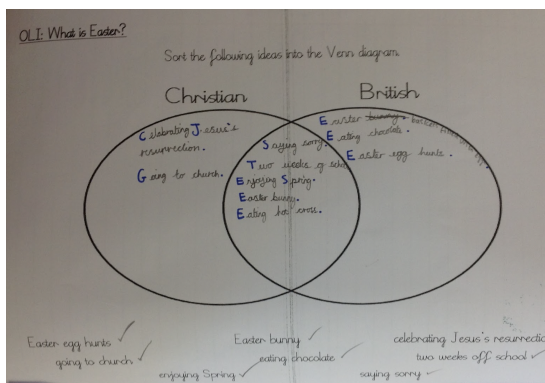 OLI: What is Easter?
Sort the following ideas into the Venn diagram.
Christian
British
Celebrating Jesus's
resurrection.
Going to church.
Saying sorry.
Two weeks of
Enjoying Spring.
Easter bunny.
Eating hot cross.
Easter bunny.
Eating chocolate.
Easter egg hunts.
Easter egg hunts ✓
going to church ✓
enjoying Spring ✓
Easter bunny ✓
eating chocolate ✓
saying sorry ✓
celebrating Jesus's resurrectio
two weeks off school ✓